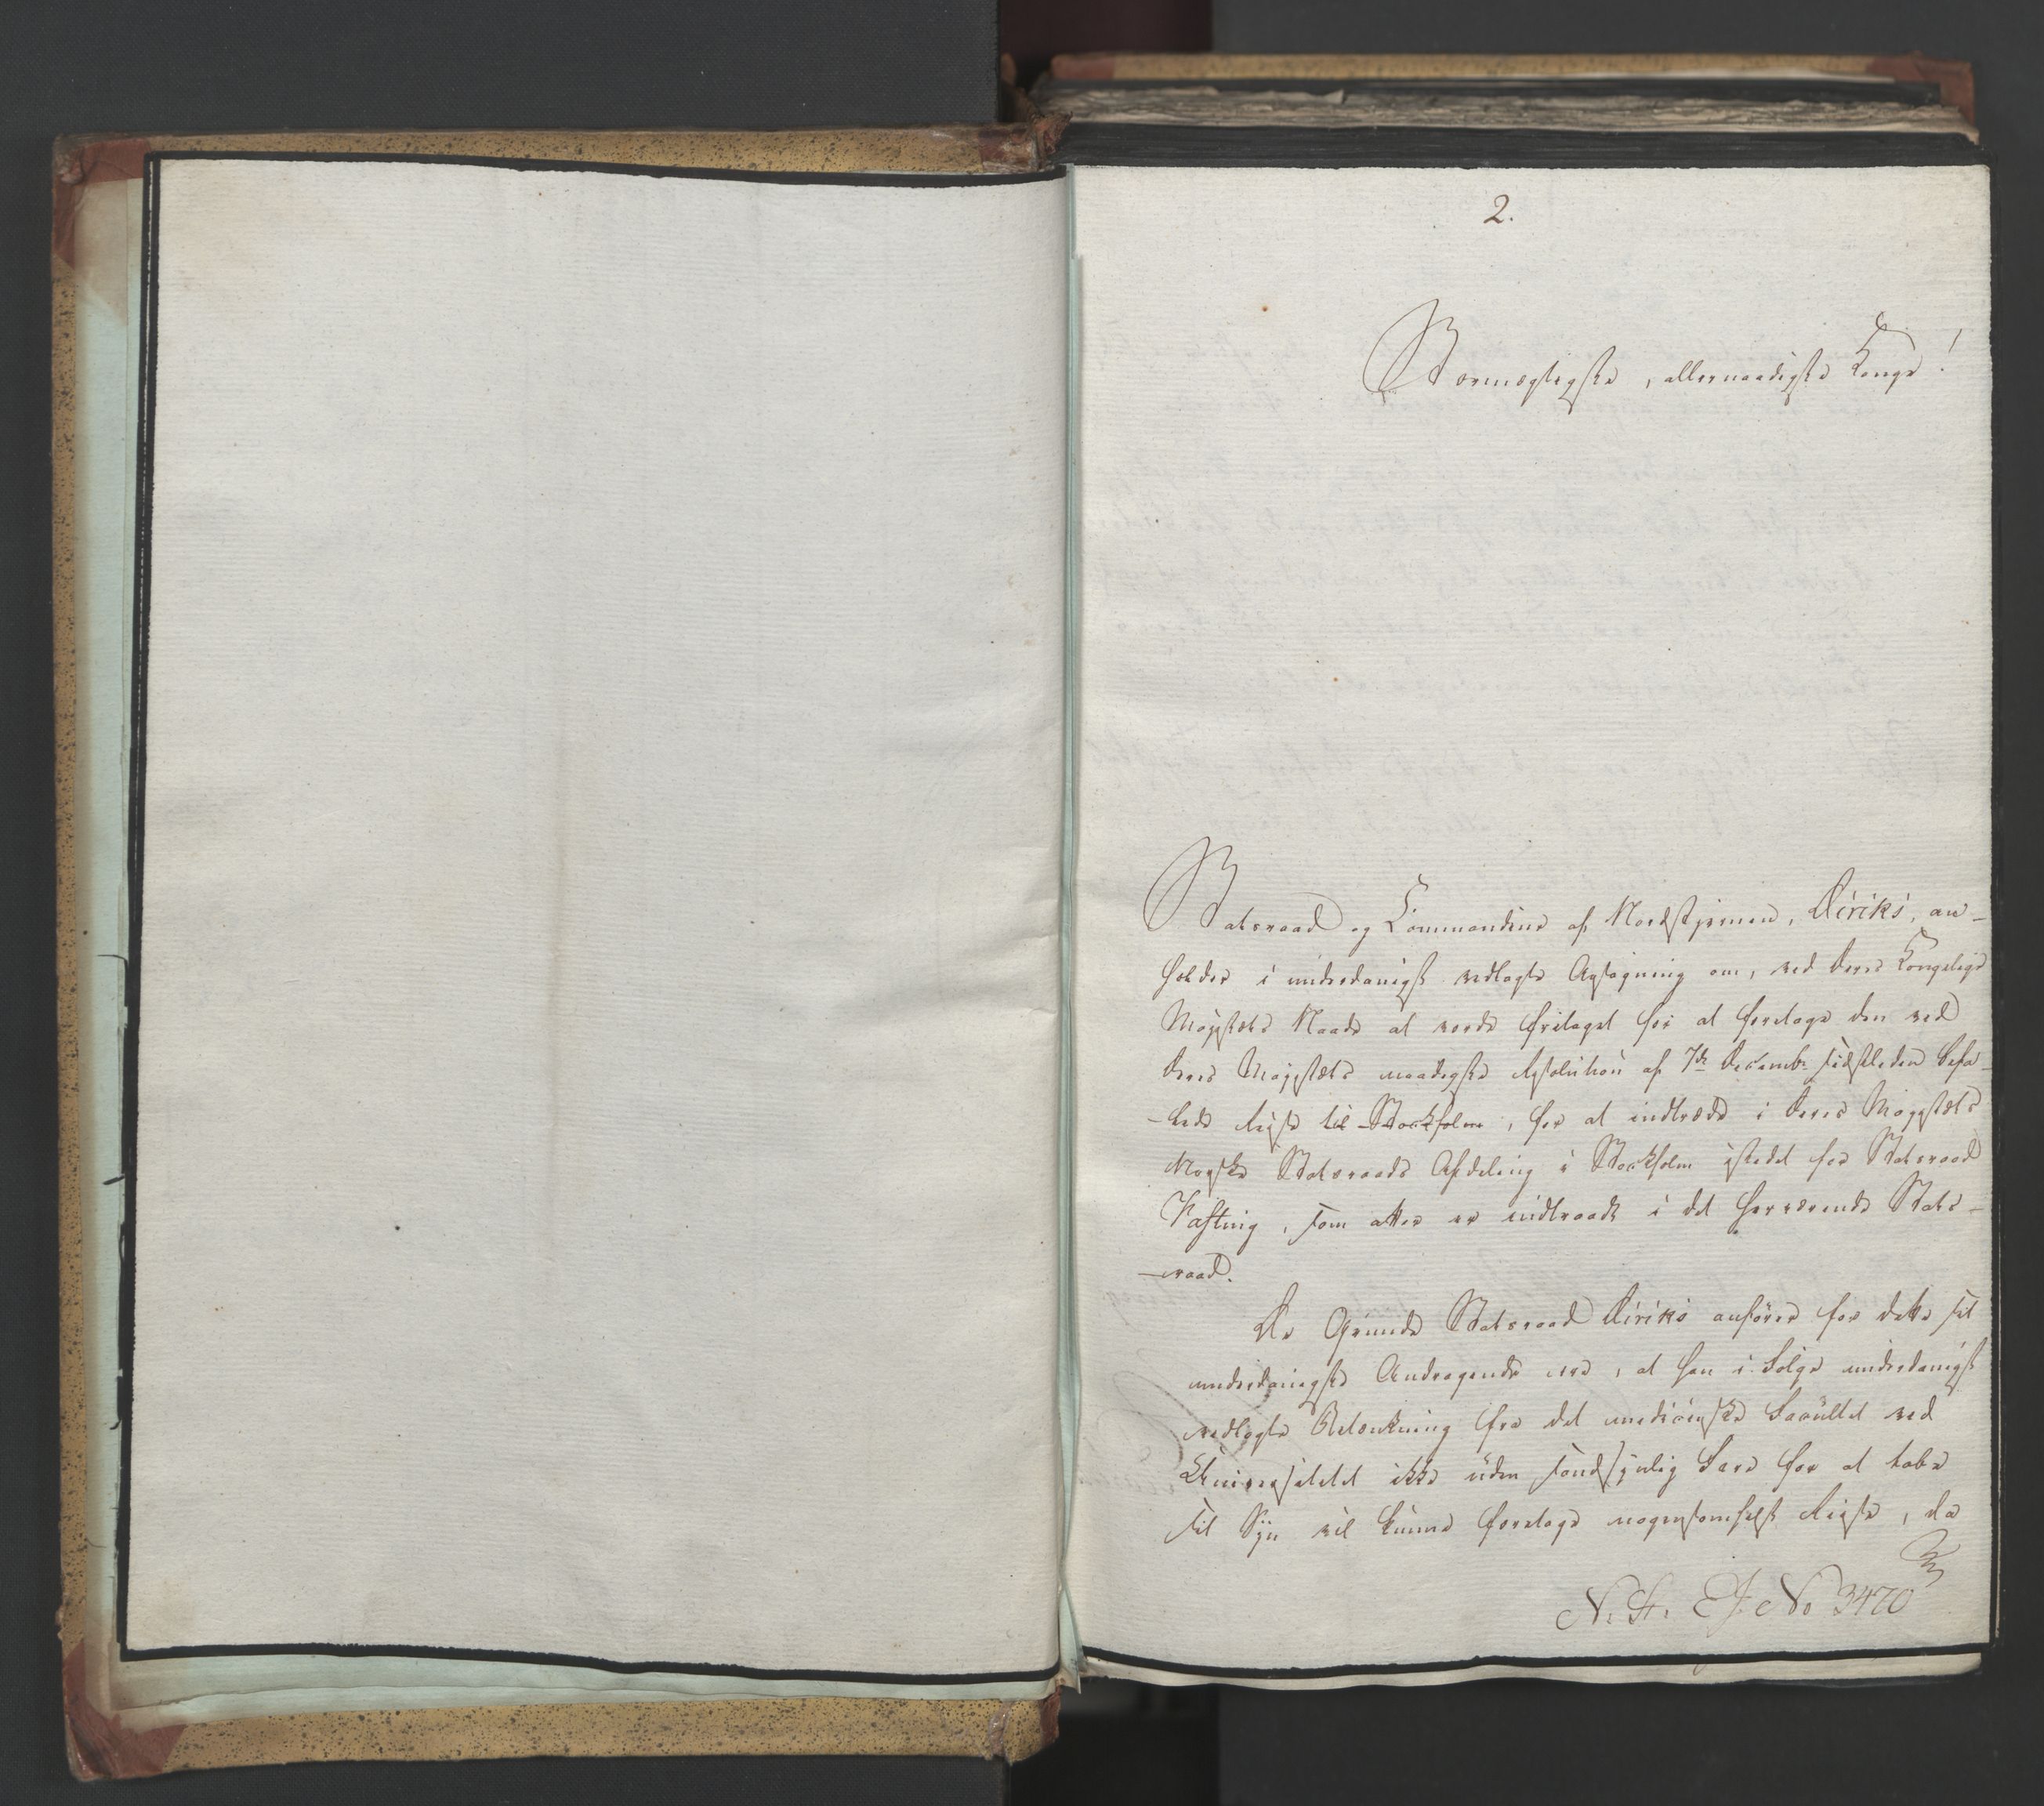 2.
Stormægtigste, allernaadigste Konge!
Statsraad og Commandeur af Nordstjernen, Diriks, an-
holder i underdanigst vedlagte Ansøgning om, ved Deres Kongelige
Majestæts Naade at vorde fritaget for at foretage den ved
Deres Majestæts naadigste Resolution af 7de Decembr sidstleden befa-
-lede Reise til Stockholm, for at indtræde i Deres Majestæts
Norske Statsraads Afdeling i Stockholm istedet for Statsraad
Fasting, som atter er indtraadt i det herværende Stats-
-raad.
De Grunde Statsraad Diriks anfører for dette sit
underdanigste Andragende ere, at han i Følge underdanigst
vedlagte Betænkning fra det medicinske Facultet ved
Universitetet ikke uden sandsynlig Fare for at tabe
sit Syn vil kunne foretage nogensomhelst Reise, da
N. St. J. No 3470